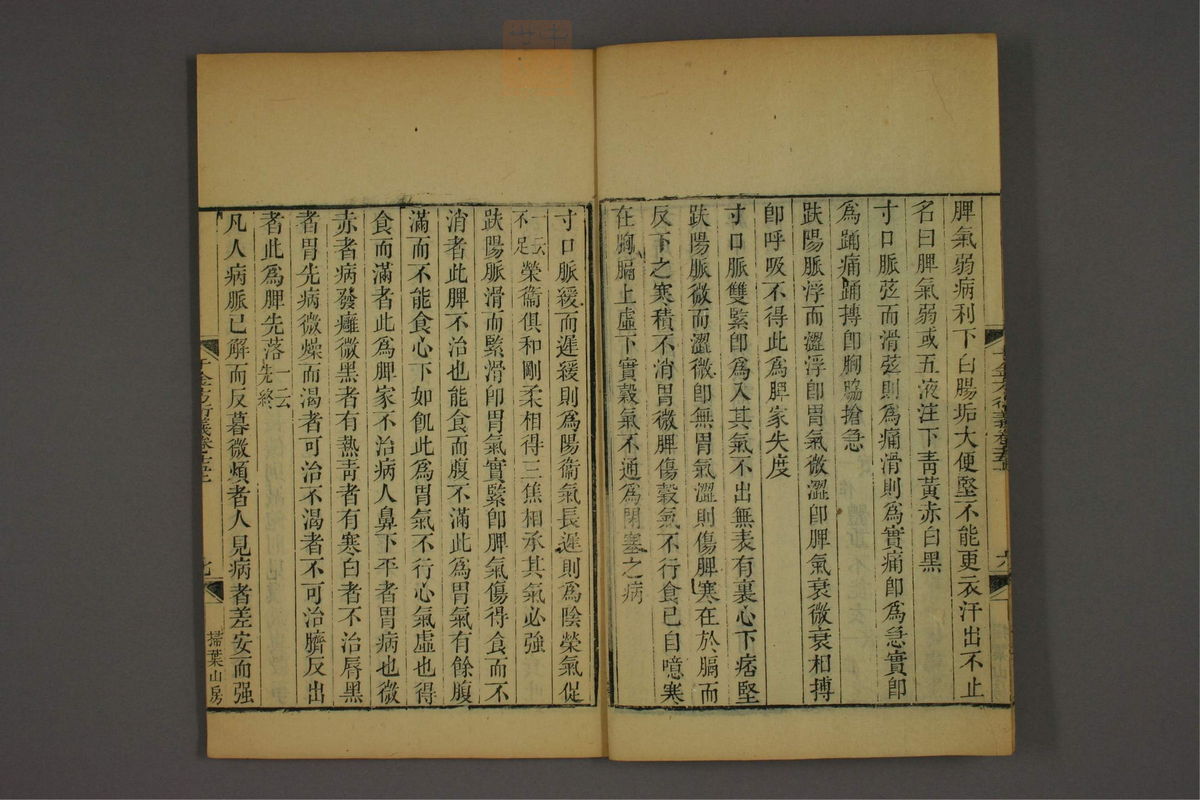 脾氣弱病利下白腸垢大便堅不能更衣汗出不止
名曰脾氣弱或五液注下靑黃赤白黑
寸口脈弦而滑弦則為痛滑則為實痛卽為急實卽
為踊痛踊搏卽胸脇搶急
趺陽脈浮而澀浮卽胃氣微澀卽脾氣衰微衰相搏
卽呼吸不得此為脾家失度
寸口脈雙緊卽為入其氣不出無表有裏心下痞堅
趺陽脈微而澀微卽無胃氣澀則傷脾寒在於膈而
反下之寒積不消胃微脾傷穀氣不行食已自噫寒
在胸膈上虛下實穀氣不通為閉塞之病
寸口脈緩而遲緩則為陽衞氣長遲則為陰榮氣促
一云不足榮衞俱和剛柔相得三焦相承其氣必強
趺陽脈滑而緊滑卽胃氣實緊卽脾氣傷得食而不
消者此脾不治也能食而腹不滿此為胃氣有餘腹
滿而不能食心下如飢此為胃氣不行心氣虛也得
食而滿者此為脾家不治病人鼻下平者胃病也微
赤者病發癰微黑者有熱靑者有寒白者不治脣黑
者胃先病微燥而渴者可治不渴者不可治臍反出
者此為脾先落一云先終
凡人病脈已解而反暮微煩者人見病者差安而強
掃葉山房